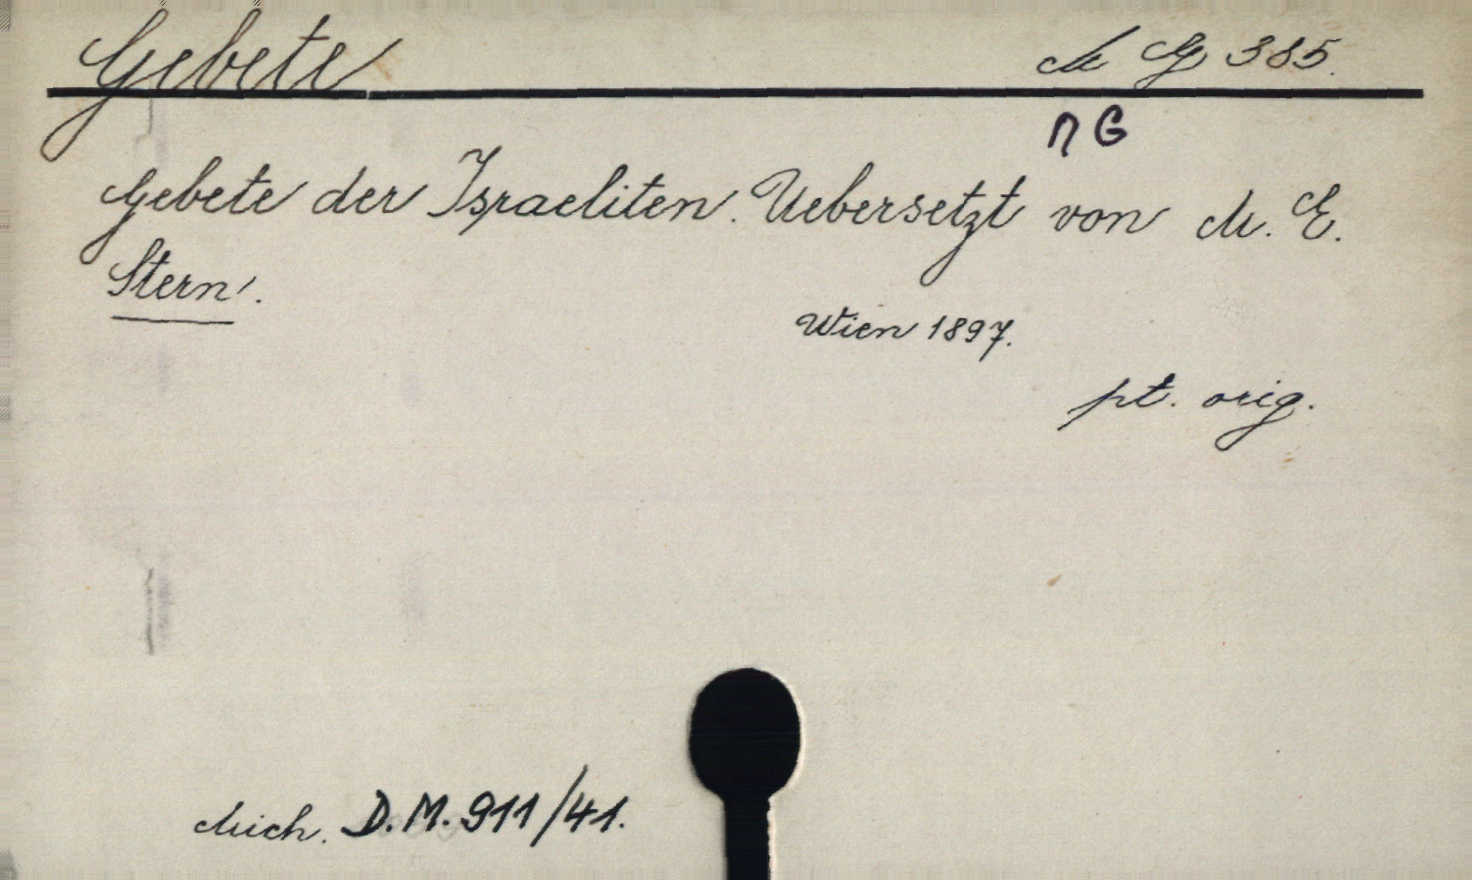 Gebete M G 385.
n G
Gebete der Israeliten. Uebersetzt von M. E.
Stern.
Wien 1897.
pt. orig.
Mich. D.M. 911/41.